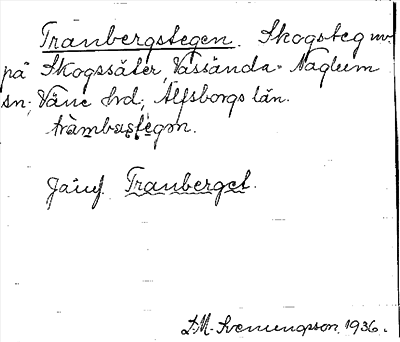 Tranbergstegen. Skogsteg
på Skogssäter, Vassända-Naglum
sn, Väne hrd, Älfsborgs län.
Jämf. Tranberget.
D.M. Svenungsson 1936.